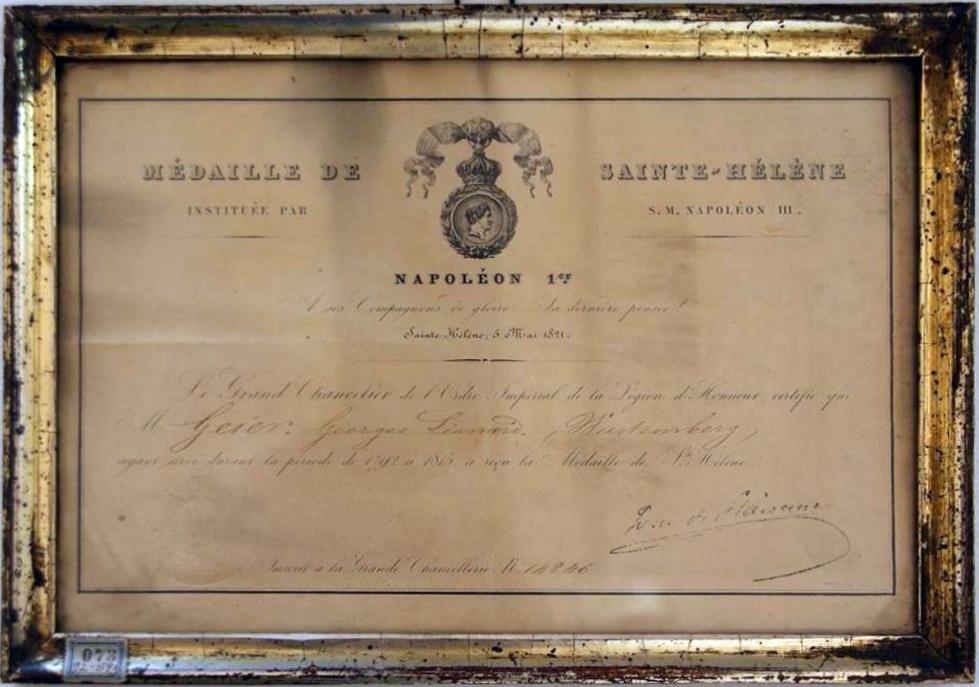 MÉDAILLE DE SAINTE-HÉLÈNE
INSTITUÉE PAR S. M. NAPOLÉON III.
NAPOLÉON 1er
A ses Compagnons de gloire, Sa dernière pensée!
Sainte-Hélène, 5 Mai 1821.
Le Grand Chancelier de l'Ordre Impérial de la Légion d'Honneur, certifie que
M Geier, Georges Léonard, (Wurtemberg)
ayant servi durant la période de 1792 à 1815, a reçu la Médaille de Ste Hélène.
Inscrit à la Grande Chancellerie No 14846
073